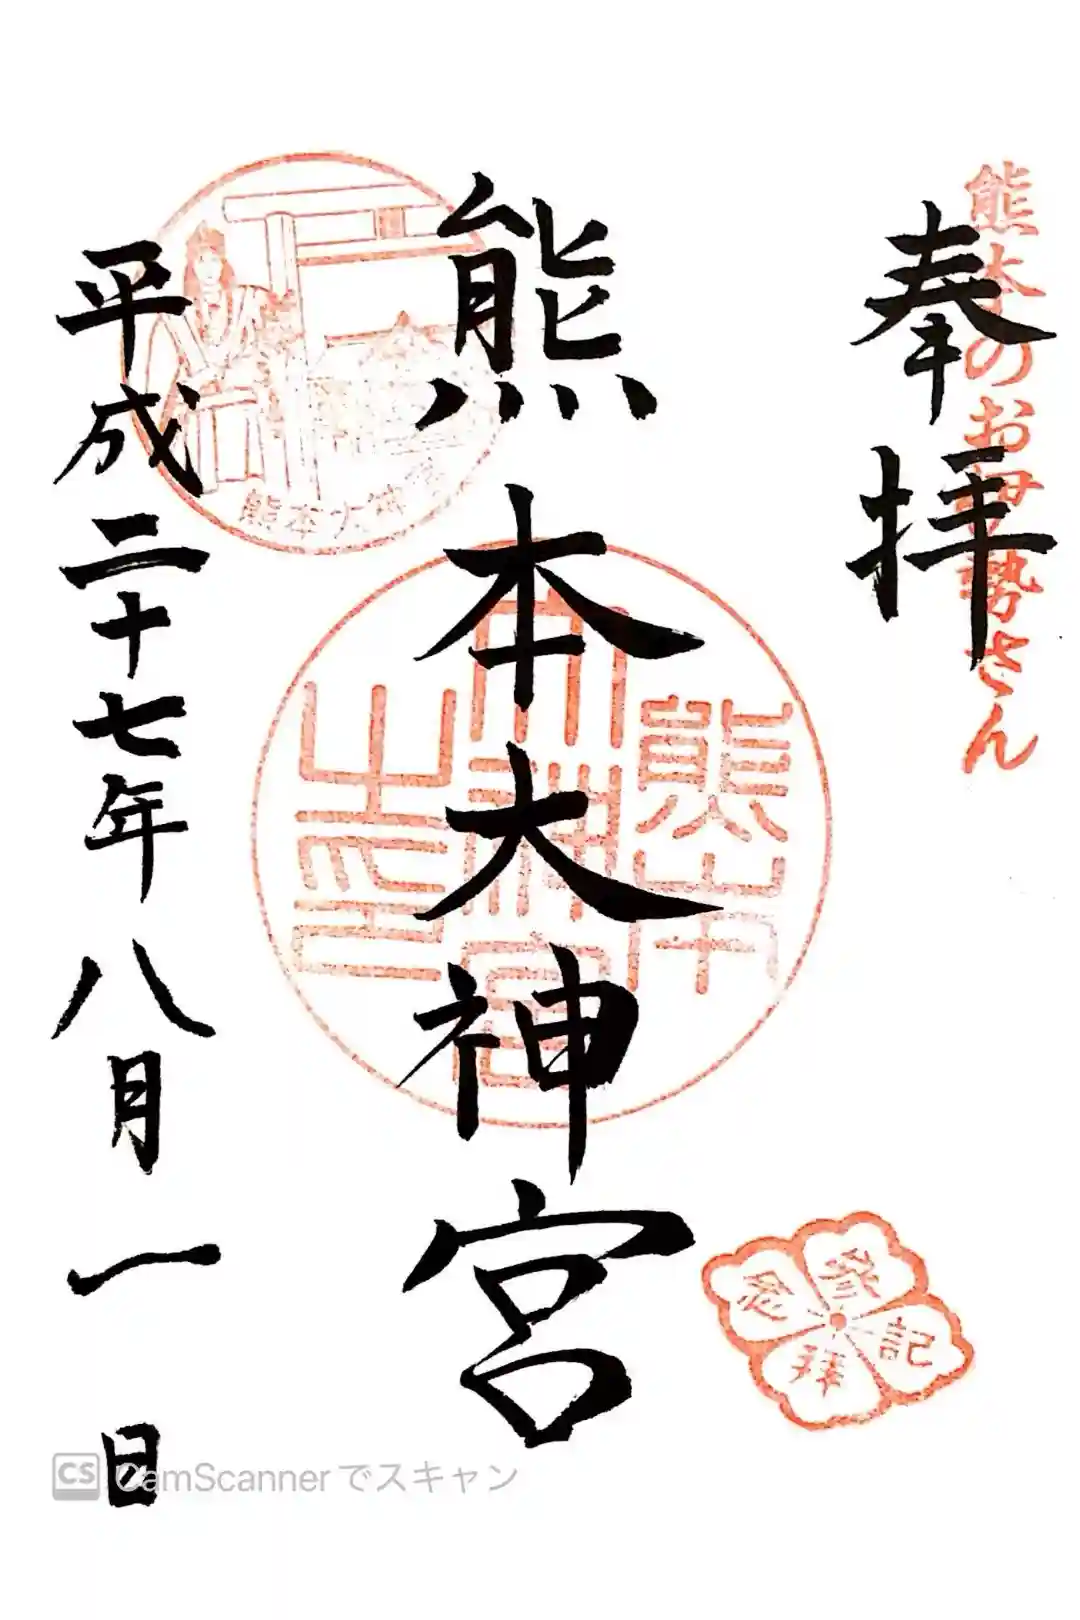 熊本のお伊勢さん
奉拝
熊本大神宮
熊本
大神宮
之印
熊本大神宮
平成二十七年八月一日
参拝記念
CS CamScannerでスキャン